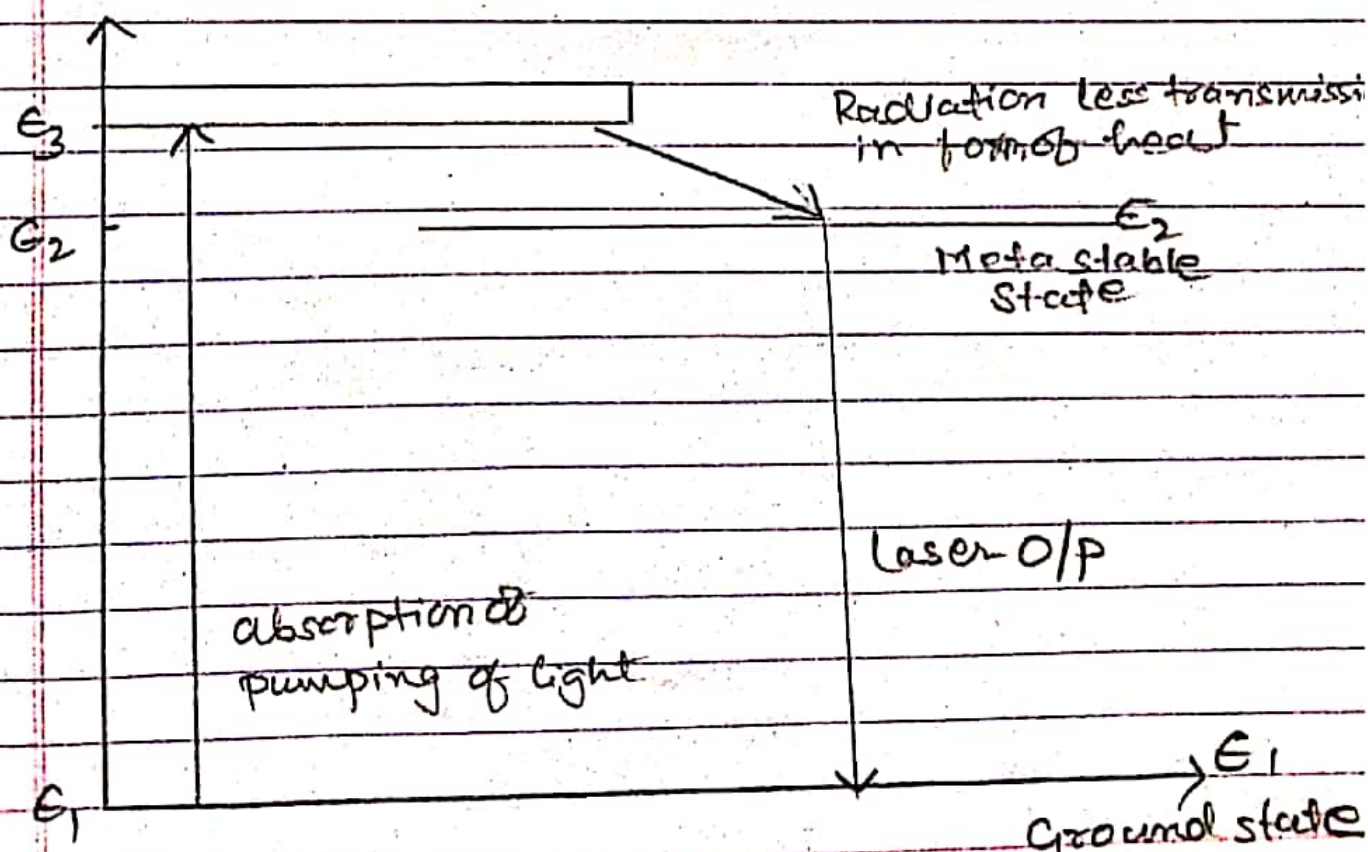 Radiation less transmissi
in form of heat
E3
E2
E2
Meta stable
State
Laser O/P
absorption of
pumping of light
E1
E1
Ground state